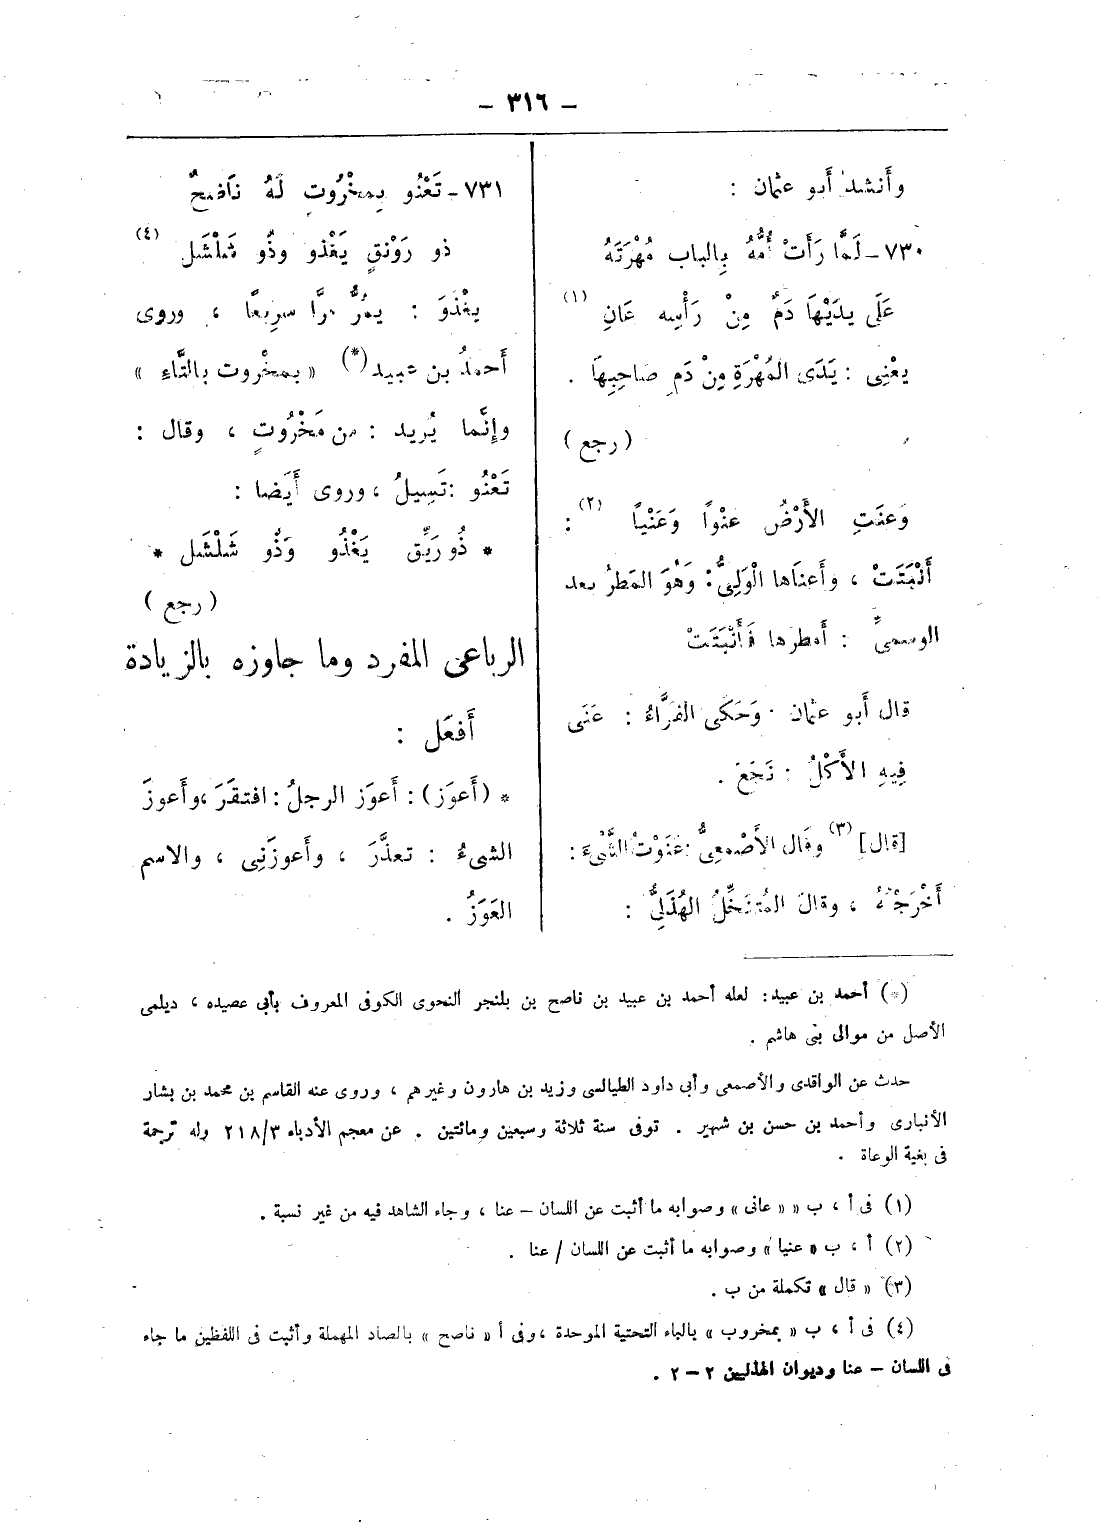 - ٣١٦ -
وأَنشد أَبو عثمان :
٧٣٠- لَمَّا رَأَتْ أُمُّهُ بِالباب مُهْرَتَهُ
عَلَى يدَيْهَا دَمٌ مِنْ رَأْسِه عَانِ (١)
يعْنِى : يَدَى المُهْرَةِ مِنْ دَمِ صاحِبِهَا .
( رجع )
وَعنَتِ الأَرْضُ عنْواً وَعَنْياً (٢) :
أَنْبَتَتْ ، وأَعناها الْوَلِىُّ : وَهُوَ المَطرُ بعد
الوسمىِّ : أَمطرها فَأَنْبَتَتْ
قال أَبو عثمان . وَحَكَى الفرَّاءُ : عَنَى
فِيهِ الأَكْلُ : نَجَعَ .
[قال] (٣) وقَال الأَصْمعِىُّ : عَنَوْتُ الشَّىْءَ :
أَخْرَجْتُهُ ، وقالَ المُتنَخِّلُ الهُذَلِىُّ :
٧٣١- تَعْنُو بِمخْرُوتٍ لَهُ نَاضِحٌ
ذو رَوْنقٍ يَغْذو وذُو شَلْشَل (٤)
يغْذوَ : يمُرُّ مرًّا سرِيعًا ، وروى
أَحمدُ بن عبيد (*) « بمخْروت بالتَّاءِ »
وإِنَّما يُريد : من مَخْرُوتٍ ، وقال :
تَعْنُو : تَسِيلُ ، وروى أَيَضا :
* ذُو رَيِّق يَغْذُو وَذُو شَلْشَل *
( رجع )
الرباعى المفرد وما جاوزه بالزيادة
أَفعَل :
* (أَعوَز) : أَعوَز الرجلُ : افتقَرَ ، وأَعوزَ
الشىءُ : تعذَّرَ ، وأَعوزَنِى ، والاسم
العَوَزُ .
(*) أحمد بن عبيد : لعله أحمد بن عبيد بن ناصح بن بلنجر النحوى الكوفى المعروف بأبى عصيده ، ديلمى
الأصل من موالى بنى هاشم .
حدث عن الواقدى والأصمعى وأبى داود الطيالسى وزيد بن هارون وغيرهم ، وروى عنه القاسم بن محمد بن بشار
الأنبارى وأحمد بن حسن بن شهير . توفى سنة ثلاثة وسبعين ومائتين . عن معجم الأدباء ٢١٨/٣ وله ترجمة
فى بغية الوعاة .
(١) فى أ ، ب « « عانى » وصوابه ما أثبت عن اللسان – عنا ، وجاء الشاهد فيه من غير نسبة .
(٢) أ ، ب « عنيا » وصوابه ما أثبت عن اللسان / عنا .
(٣) « قال » تكملة من ب .
(٤) فى أ ، ب « بمخروب » بالباء التحتية الموحدة ، وفى أ « ناصح » بالصاد المهملة وأثبت فى اللفظين ما جاء
فى اللسان – عنا وديوان الهذليين ٢ – ٢ .